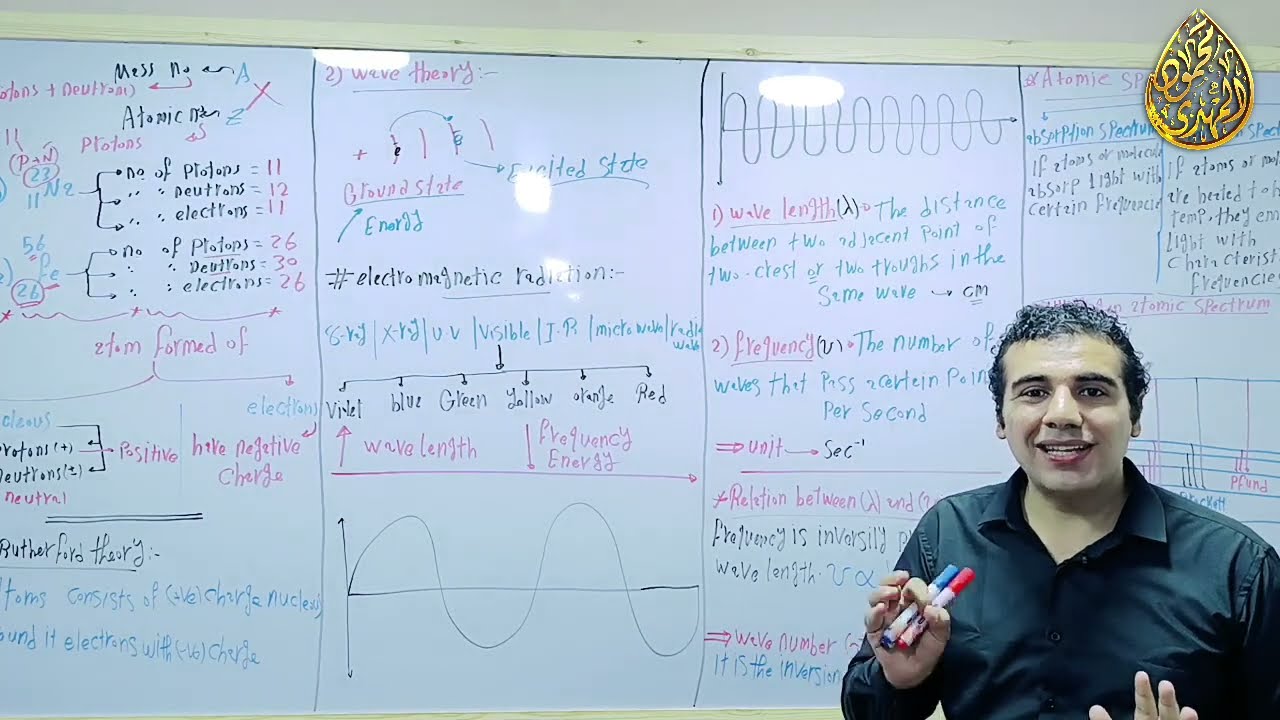 Mass No A
Protons + Neutrons)
Atomic No Z
Protons
11
(P+N)
23
11 Na
no of Protons = 11
neutrons = 12
electrons = 11
56
26 Fe
no of Protons = 26
neutrons = 30
electrons = 26
atom formed of
electrons
Positive
have negative
charge
neutral
Rutherford theory:-
Atoms consists of (+ve) charge nucleus
ound it electrons with (-ve) charge
2) wave theory:-
+
Excited State
Ground State
Energy
# electro magnetic radiation:-
γ-ray | X-ray | U.V | Visible | I.R | micro wave | radio
wave
Violet blue Green Yallow orange Red
wave length
frequency
Energy
1) wave length (λ) The distance
between two adjacent Point of
two-crest or two troughs in the
Same wave → cm
2) frequency (υ) The number of
waves that Pass a certain Point
Per Second
⇒ unit → Sec⁻¹
* Relation between (λ) and (υ
frequency is inversily P
wave length. υ ∝
⇒ wave number
it is the inversion
* Atomic Sp
absorption spectrum
If atoms or molecul
absorp light with
certain frequencie
Spec
If atoms or mo
are heated to h
temp. they em
light with
characterist
frequencie
atomic spectrum
Pfund
Brackett
محمود
المهدى